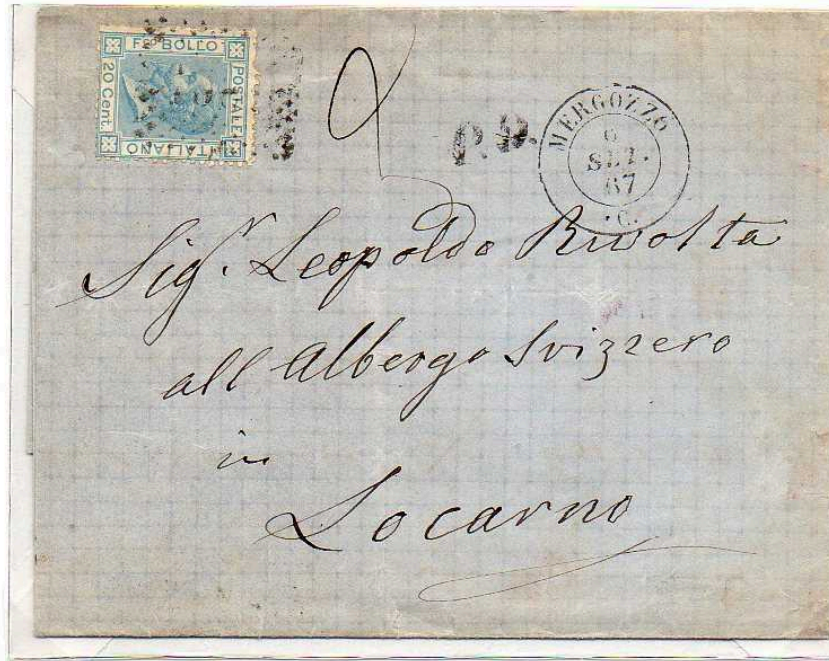 FCO BOLLO
POSTALE
ITALIANO
20 Cent.
P.D.
MERGOZZO
6
SET.
67
C.
Sig.r Leopoldo Rivolta
all Albergo Svizzero
in
Locarno